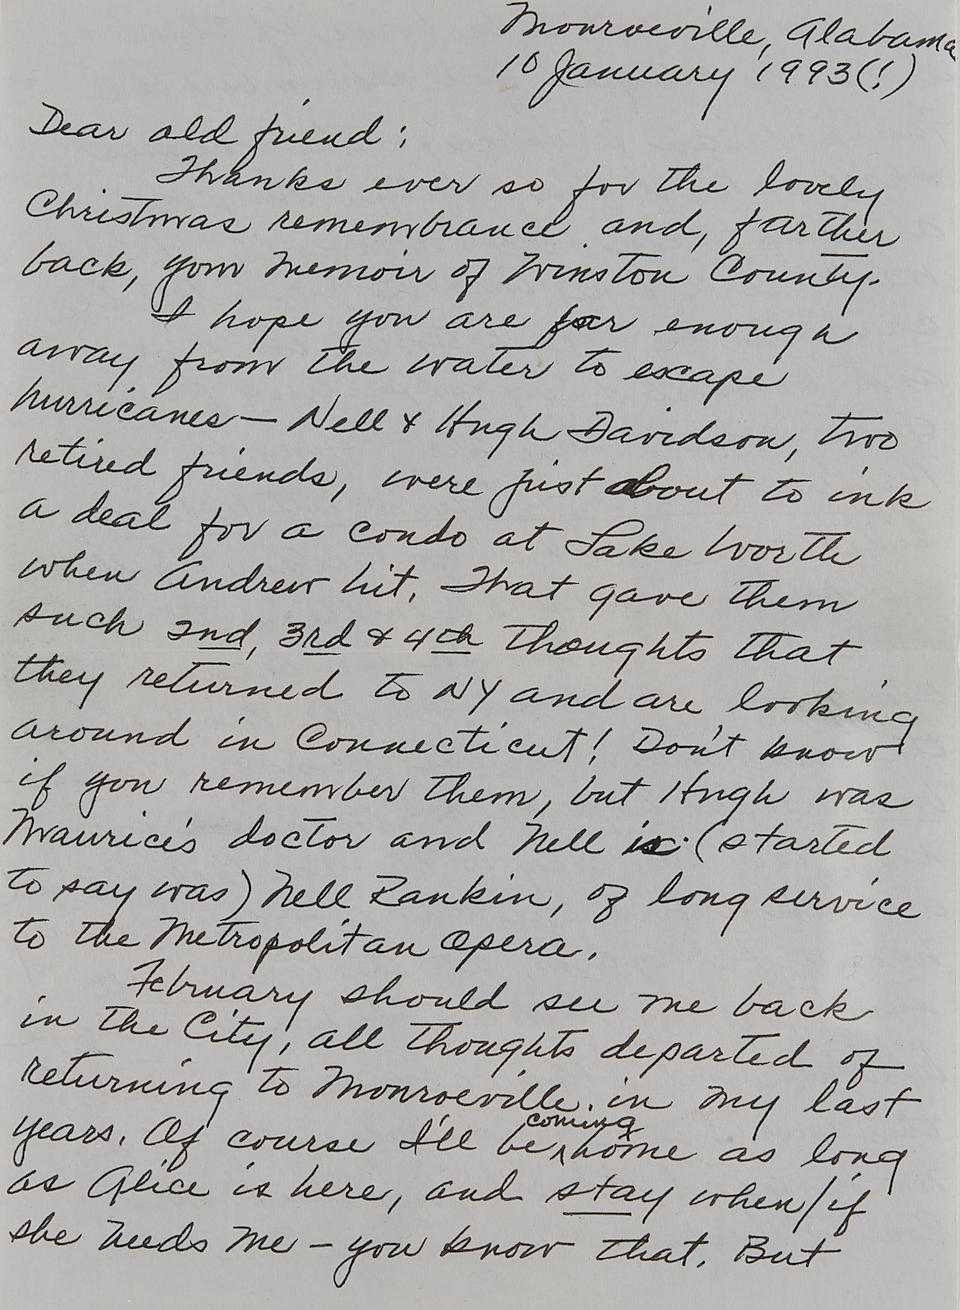 Monroeville, Alabama
10 January 1993(!)
Dear old friend:
Thanks ever so for the lovely
Christmas remembrance and, farther
back, your memoir of Winston County.
I hope you are far enough
away from the water to escape
hurricanes — Nell & Hugh Davidson, two
retired friends, were just about to ink
a deal for a condo at Lake Worth
when Andrew hit. That gave them
such 2nd, 3rd & 4th thoughts that
they returned to NY and are looking
around in Connecticut! Don't know
if you remember them, but Hugh was
Maurice's doctor and Nell is (started
to say was) Nell Rankin, of long service
to the Metropolitan Opera.
February should see me back
in the City, all thoughts departed of
returning to Monroeville in my last
years. Of course I'll be coming home as long
as Alice is here, and stay when/if
she needs me — you know that. But